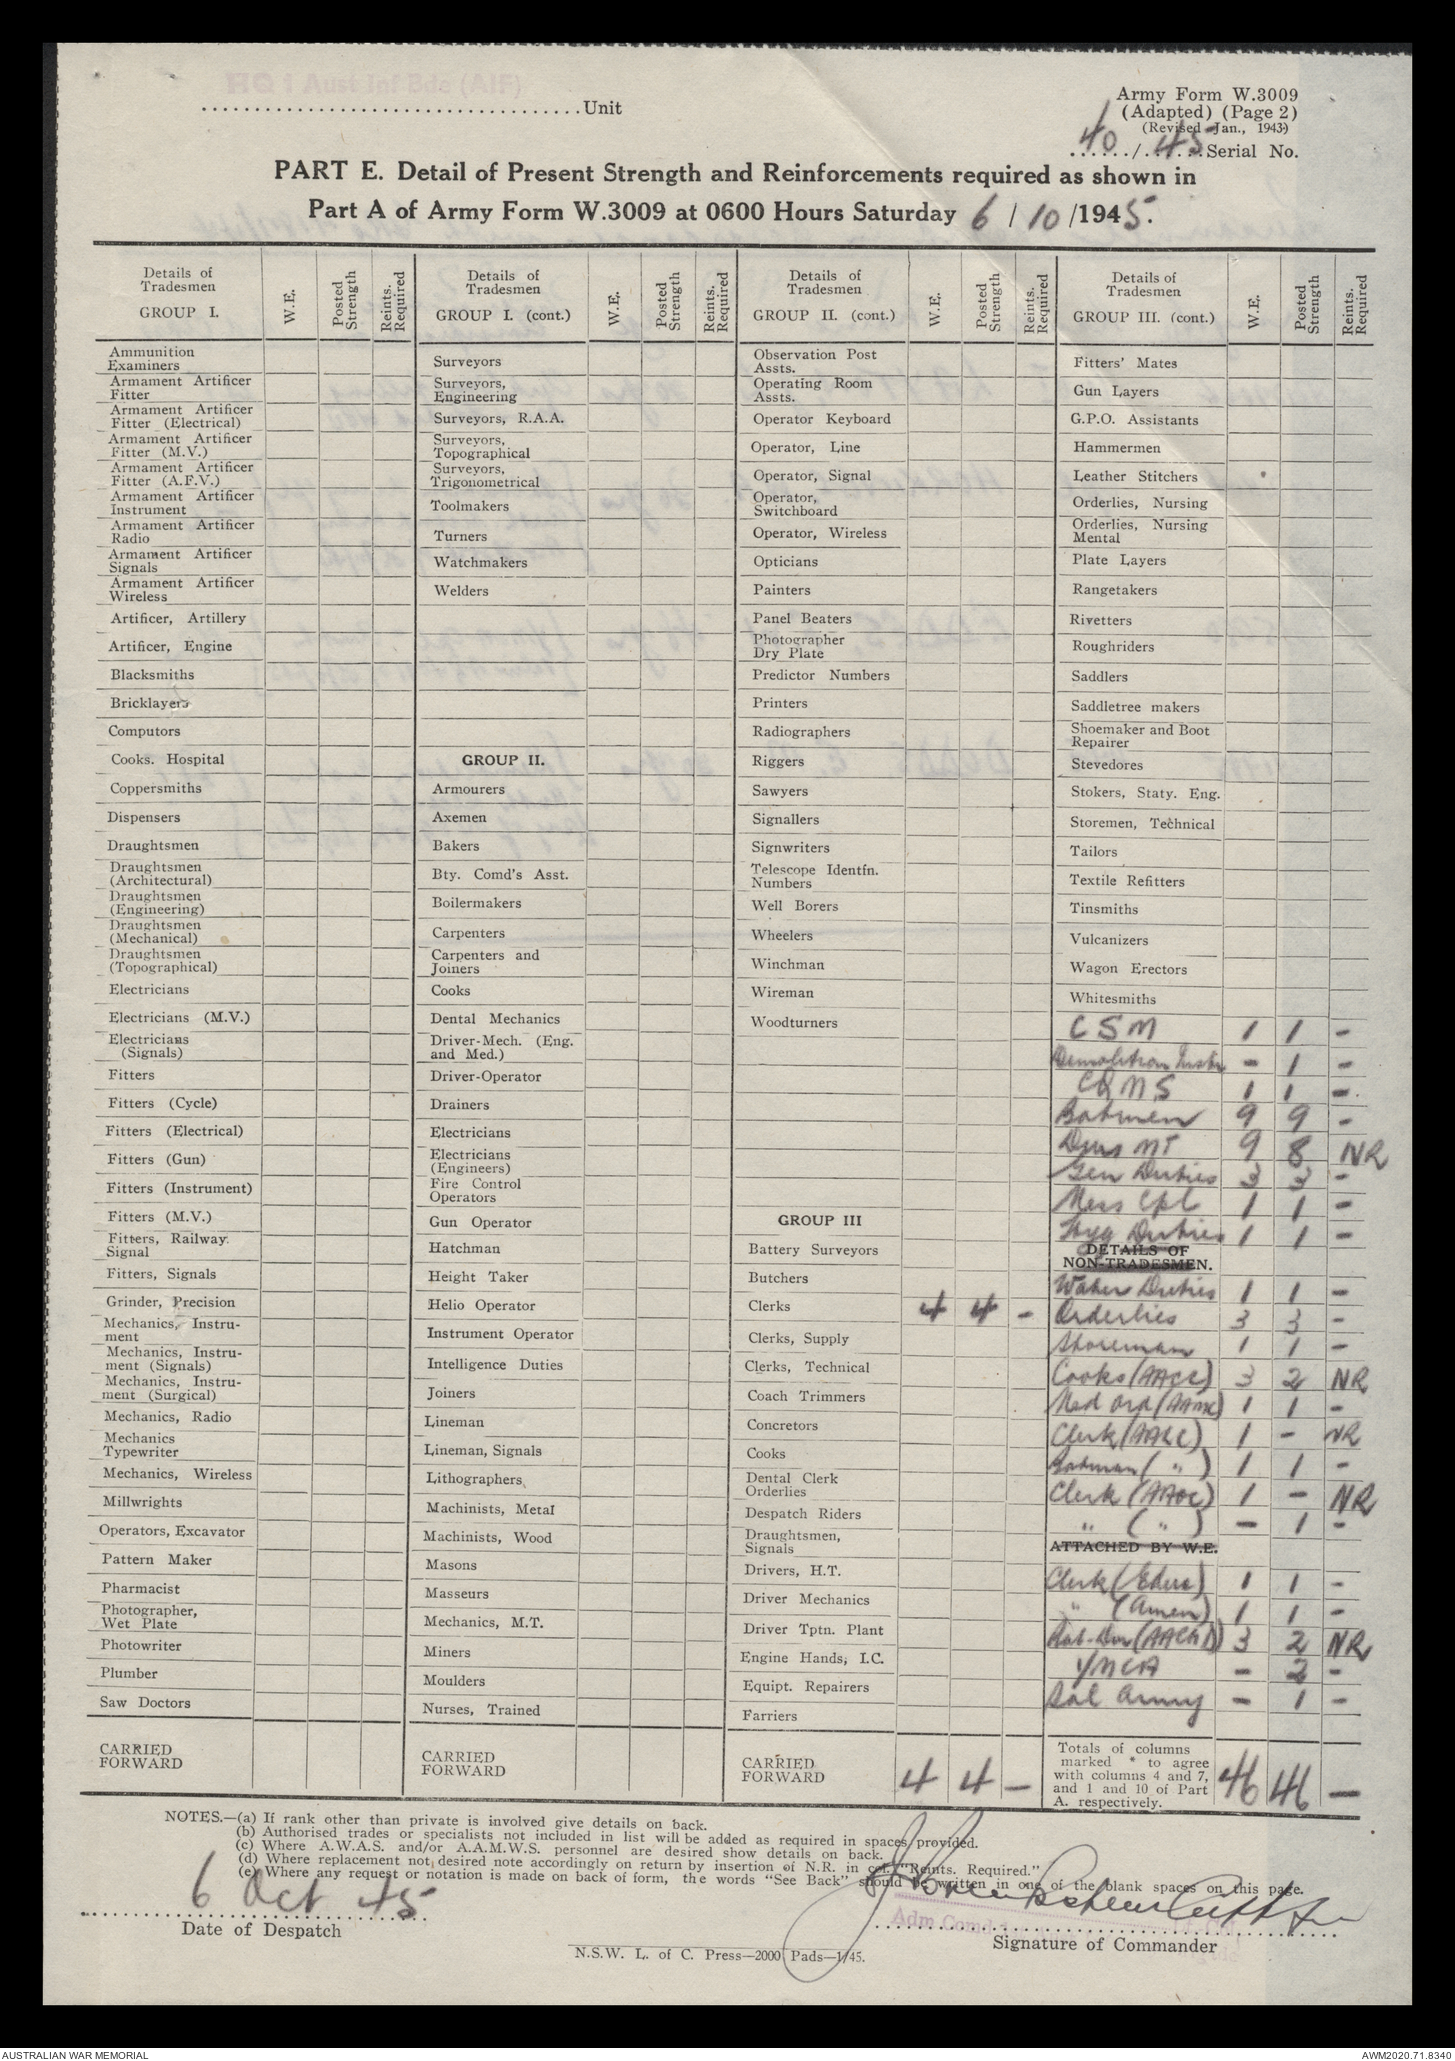 HQ 1 Aust Inf Bde (AIF)
Unit
Army Form W.3009
(Adapted) (Page 2)
(Revised Jan., 1943)
40/45 Serial No.
PART E. Detail of Present Strength and Reinforcements required as shown in
Part A of Army Form W.3009 at 0600 Hours Saturday 6/10/1945.
Details of Tradesmen
GROUP I.
W.E.
Posted Strength
Reints. Required
Ammunition
Examiners
Armament Artificer
Fitter
Armament Artificer
Fitter (Electrical)
Armament Artificer
Fitter (M.V.)
Armament Artificer
Fitter (A.F.V.)
Armament Artificer
Instrument
Armament Artificer
Radio
Armament Artificer
Signals
Armament Artificer
Wireless
Artificer, Artillery
Artificer, Engine
Blacksmiths
Bricklayers
Computors
Cooks. Hospital
Coppersmiths
Dispensers
Draughtsmen
Draughtsmen
(Architectural)
Draughtsmen
(Engineering)
Draughtsmen
(Mechanical)
Draughtsmen
(Topographical)
Electricians
Electricians (M.V.)
Electricians
(Signals)
Fitters
Fitters (Cycle)
Fitters (Electrical)
Fitters (Gun)
Fitters (Instrument)
Fitters (M.V.)
Fitters, Railway.
Signal
Fitters, Signals
Grinder, Precision
Mechanics, Instru-
ment
Mechanics, Instru-
ment (Signals)
Mechanics, Instru-
ment (Surgical)
Mechanics, Radio
Mechanics
Typewriter
Mechanics, Wireless
Millwrights
Operators, Excavator
Pattern Maker
Pharmacist
Photographer,
Wet Plate
Photowriter
Plumber
Saw Doctors
CARRIED
FORWARD
Details of Tradesmen
GROUP I. (cont.)
W.E.
Posted Strength
Reints. Required
Surveyors
Surveyors,
Engineering
Surveyors, R.A.A.
Surveyors,
Topographical
Surveyors,
Trigonometrical
Toolmakers
Turners
Watchmakers
Welders
GROUP II.
Armourers
Axemen
Bakers
Bty. Comd's Asst.
Boilermakers
Carpenters
Carpenters and
Joiners
Cooks
Dental Mechanics
Driver-Mech. (Eng.
and Med.)
Driver-Operator
Drainers
Electricians
Electricians
(Engineers)
Fire Control
Operators
Gun Operator
Hatchman
Height Taker
Helio Operator
Instrument Operator
Intelligence Duties
Joiners
Lineman
Lineman, Signals
Lithographers
Machinists, Metal
Machinists, Wood
Masons
Masseurs
Mechanics, M.T.
Miners
Moulders
Nurses, Trained
CARRIED
FORWARD
Details of Tradesmen
GROUP II. (cont.)
W.E.
Posted Strength
Reints. Required
Observation Post
Assts.
Operating Room
Assts.
Operator Keyboard
Operator, Line
Operator, Signal
Operator,
Switchboard
Operator, Wireless
Opticians
Painters
Panel Beaters
Photographer
Dry Plate
Predictor Numbers
Printers
Radiographers
Riggers
Sawyers
Signallers
Signwriters
Telescope Identfn.
Numbers
Well Borers
Wheelers
Winchman
Wireman
Woodturners
GROUP III
Battery Surveyors
Butchers
Clerks 4 4 -
Clerks, Supply
Clerks, Technical
Coach Trimmers
Concretors
Cooks
Dental Clerk
Orderlies
Despatch Riders
Draughtsmen,
Signals
Drivers, H.T.
Driver Mechanics
Driver Tptn. Plant
Engine Hands, I.C.
Equipt. Repairers
Farriers
CARRIED
FORWARD 4 4 -
Details of Tradesmen
GROUP III. (cont.)
W.E.
Posted Strength
Reints. Required
Fitters' Mates
Gun Layers
G.P.O. Assistants
Hammermen
Leather Stitchers
Orderlies, Nursing
Orderlies, Nursing
Mental
Plate Layers
Rangetakers
Rivetters
Roughriders
Saddlers
Saddletree makers
Shoemaker and Boot
Repairer
Stevedores
Stokers, Staty. Eng.
Storemen, Technical
Tailors
Textile Refitters
Tinsmiths
Vulcanizers
Wagon Erectors
Whitesmiths
CSM 1 1 -
Demolition Instr - 1 -
CQMS 1 1 -
Batmen 9 9 -
Dvrs MT 9 8 NR
Gen Duties 3 3 -
Mess Cpl 1 1 -
Hyg Duties 1 1 -
DETAILS OF
NON-TRADESMEN.
Water Duties 1 1 -
Orderlies 3 3 -
Storeman 1 1 -
Cooks (AACC) 3 2 NR
Med Ord (AAMC) 1 1 -
Clerk (AASC) 1 - NR
Batman ( " ) 1 1 -
Clerk (AAOC) 1 - NR
" ( " ) - 1 -
ATTACHED BY W.E.
Clerk (Educ) 1 1 -
" (Amen) 1 1 -
Bat-Dvr (AAChD) 3 2 NR
YMCA - 2 -
Sal Army - 1 -
Totals of columns
marked * to agree
with columns 4 and 7,
and 1 and 10 of Part
A. respectively. 46 46 -
NOTES.—(a) If rank other than private is involved give details on back.
(b) Authorised trades or specialists not included in list will be added as required in spaces provided.
(c) Where A.W.A.S. and/or A.A.M.W.S. personnel are desired show details on back.
(d) Where replacement not desired note accordingly on return by insertion of N.R. in col. "Reints. Required."
(e) Where any request or notation is made on back of form, the words "See Back" should be written in one of the blank spaces on this page.
6 Oct 45
Date of Despatch
Adm Comd
Signature of Commander
N.S.W. L. of C. Press—2000 Pads—1/45.
AUSTRALIAN WAR MEMORIAL
AWM2020.71.8340